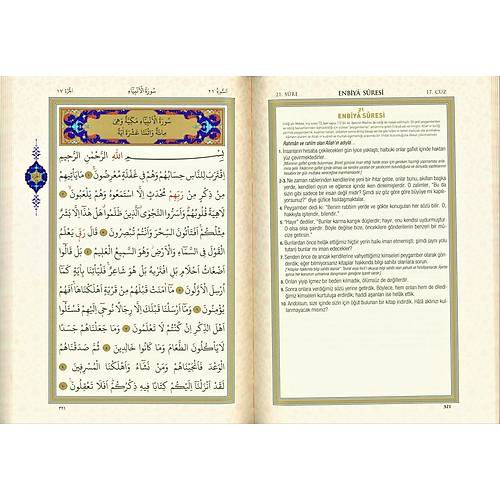 السورة ٢١
سورة الأنبياء
الجزء ١٧
سورة الأنبياء مكية وهى
مائة واثنتا عشرة آية
بسم الله الرحمن الرحيم
اقترب للناس حسابهم وهم فى غفلة معرضون ﴿١﴾ ما يأتيهم
من ذكر من ربهم محدث إلا استمعوه وهم يلعبون ﴿٢﴾
لاهية قلوبهم وأسروا النجوى الذين ظلموا هل هذا إلا بشر
مثلكم أفتأتون السحر وأنتم تبصرون ﴿٣﴾ قال ربى يعلم
القول فى السماء والأرض وهو السميع العليم ﴿٤﴾ بل قالوا
أضغاث أحلام بل افتريه بل هو شاعر فليأتنا بآية كما
أرسل الأولون ﴿٥﴾ ما آمنت قبلهم من قرية أهلكناها أفهم
يؤمنون ﴿٦﴾ وما أرسلنا قبلك إلا رجالا نوحى إليهم فسئلوا
أهل الذكر إن كنتم لا تعلمون ﴿٧﴾ وما جعلناهم جسدا
لا يأكلون الطعام وما كانوا خالدين ﴿٨﴾ ثم صدقناهم
الوعد فأنجيناهم ومن نشاء وأهلكنا المسرفين ﴿٩﴾
لقد أنزلنا إليكم كتابا فيه ذكركم أفلا تعقلون ﴿١٠﴾
٣٢١
21. SÛRE
ENBİYÂ SÛRESİ
17. CÜZ
21
ENBİYÂ SÛRESİ
Rahmân ve rahîm olan Allah'ın adıyla...
1. İnsanların hesaba çekilecekleri gün iyice yaklaştı, halbuki onlar gaflet içinde haktan
yüz çevirmektedirler.
2-3. Ne zaman rablerinden kendilerine yeni bir ihtar gelse, onlar bunu, akılları başka
yerde, kendileri oyun ve eğlence içinde iken dinlemişlerdir. O zalimler, "Bu da
sizin gibi sadece bir beşer değil mi? Siz şimdi göz göre göre büyüye mi kapılı-
yorsunuz?" diye gizlice fısıldaşmaktalar.
4. Peygamber dedi ki: "Benim rabbim yerde ve gökte konuşulan her sözü bilir. O,
hakkıyla işitendir, bilendir."
5. "Hayır" dediler, "Bunlar karma karışık düşlerdir; hayır, onu kendisi uydurmuştur.
O olsa olsa şairdir. Böyle değilse bize, öncekilere gönderilenin benzeri bir mûci-
ze getirsin."
6. Bunlardan önce helâk ettiğimiz hiçbir yerin halkı iman etmemişti; şimdi (aynı yolu
tutan) bunlar mı iman edecekler?
7. Senden önce de ancak kendilerine vahyettiğimiz kimseleri peygamber olarak gön-
derdik; eğer bilmiyorsanız kitaplar hakkında bilgi sahibi olanlara sorun.
8. Onları yiyip içmez bir beden kılmadık, ölümsüz de değillerdir.
9. Sonra onlara verdiğimiz sözü yerine getirdik. Böylece, hem onları hem de diledi-
ğimiz kimseleri kurtuluşa erdirdik, haddi aşanları ise helâk ettik.
10. Andolsun, size içinde sizin için öğüt bulunan bir kitap indirdik. Hâlâ aklınızı kul-
lanmayacak mısınız?
321